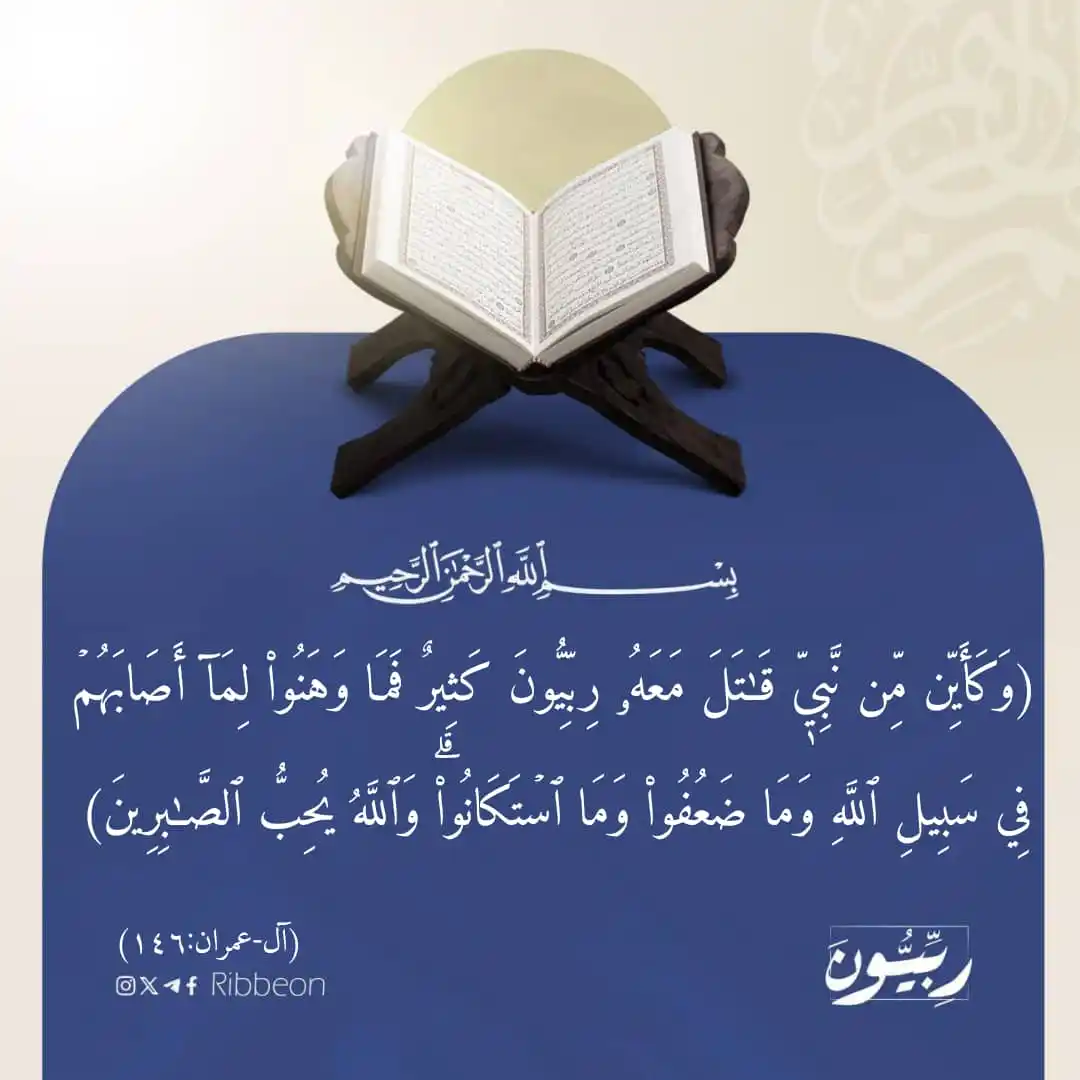 بِسْمِ ٱللَّهِ ٱلرَّحْمَٰنِ ٱلرَّحِيمِ
(وَكَأَيِّن مِّن نَّبِيّٖ قَٰتَلَ مَعَهُۥ رِبِّيُّونَ كَثِيرٞ فَمَا وَهَنُواْ لِمَآ أَصَابَهُمۡ
فِي سَبِيلِ ٱللَّهِ وَمَا ضَعُفُواْ وَمَا ٱسۡتَكَانُواْۗ وَٱللَّهُ يُحِبُّ ٱلصَّٰبِرِينَ)
(آل-عمران:١٤٦)
Ribbeon
رِبِّيُّونَ